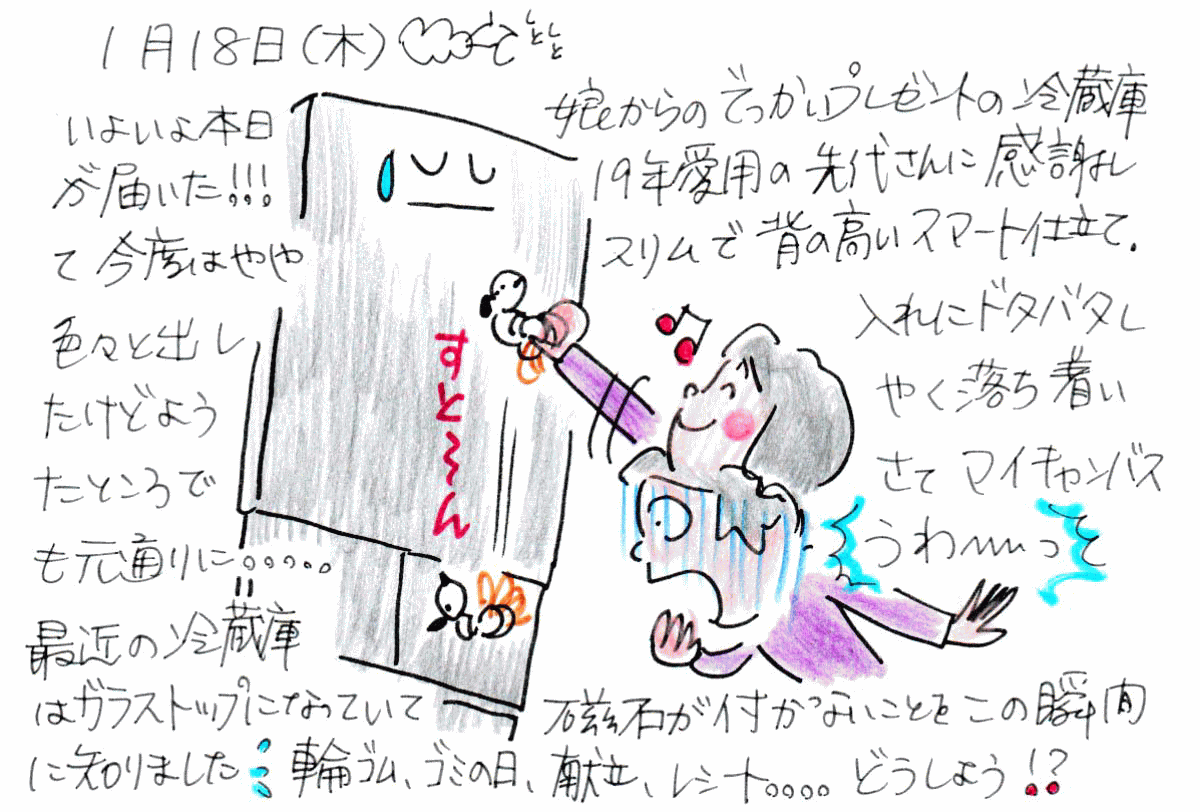 1月18日(木) しとしと
いよいよ本日 娘からのでっかいプレゼントの冷蔵庫
が届いた!!! 19年愛用の先代さんに感謝し
て今度はやや スリムで背の高いスマート仕立て.
色々と出し 入れにドタバタし
たけどよう やく落ち着い
たところで さてマイキャンバス
も元通りに。。。。。
すと〜〜ん
うわ〜〜っと
最近の冷蔵庫
はガラストップになっていて 磁石が付かないことをこの瞬間
に知りました 輪ゴム、ゴミの日、献立、レシート。。。。どうしよう!?